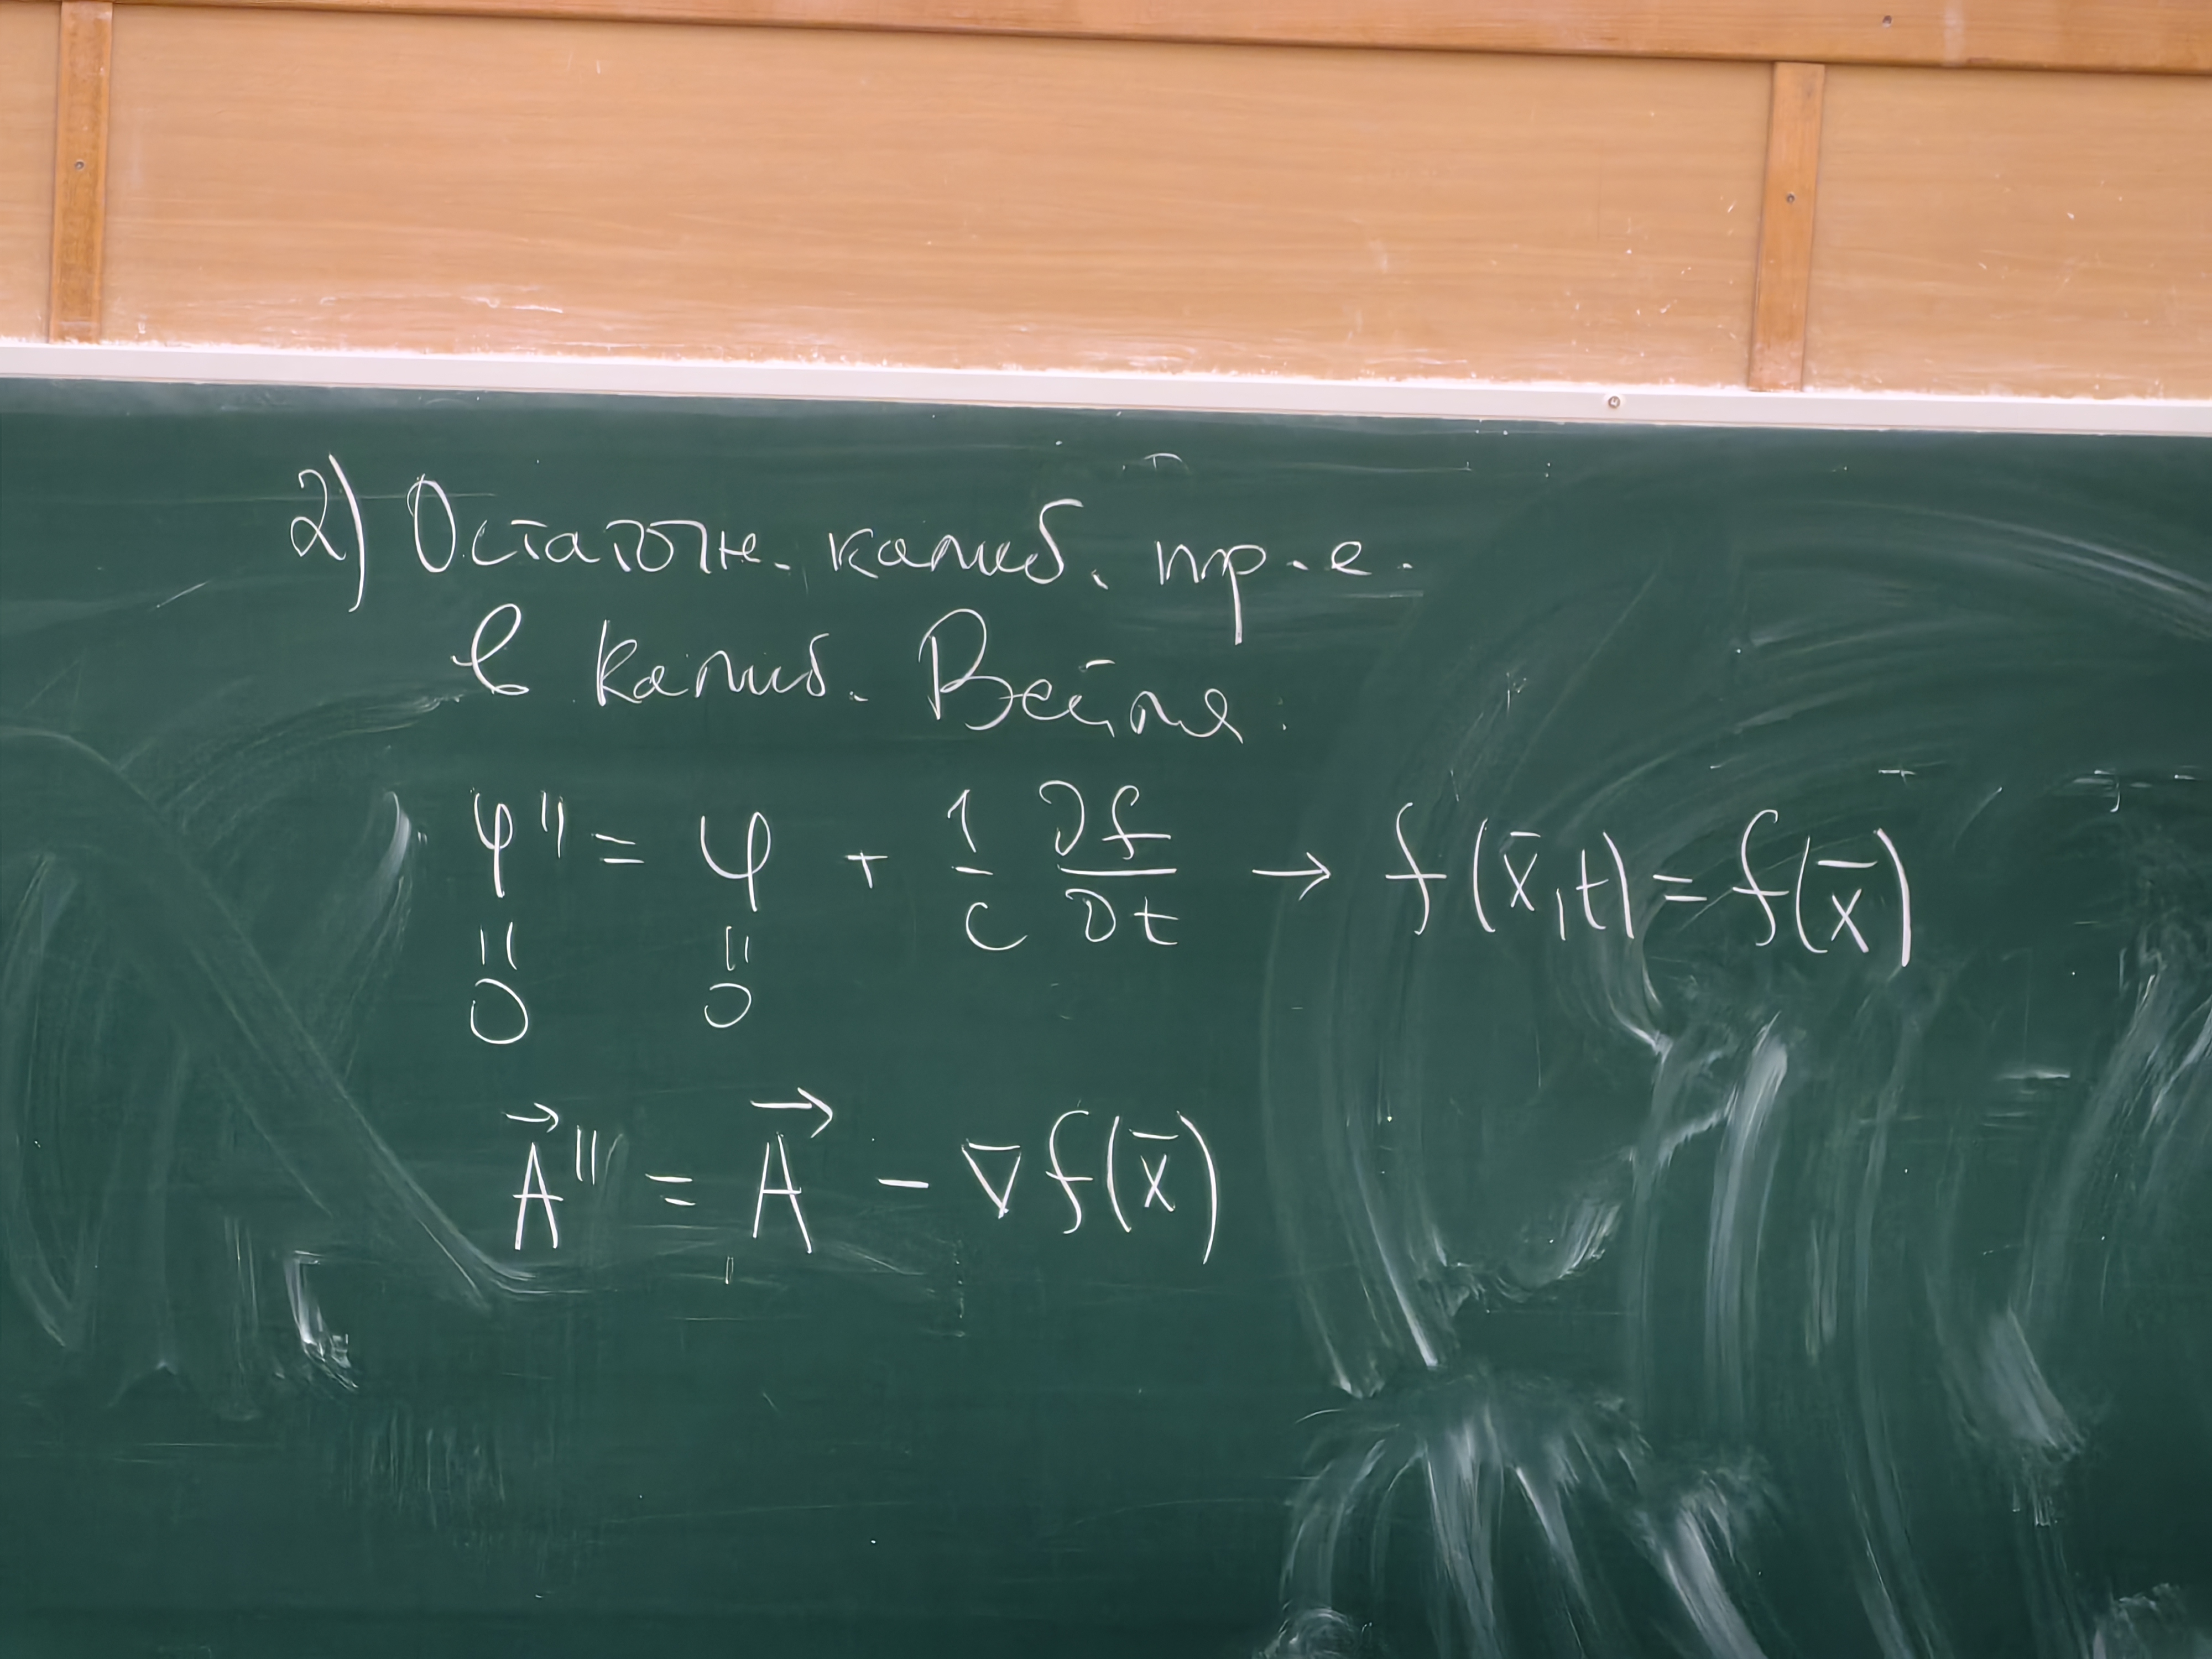 2) Остаточн. калиб. пр-е.
в калиб. Вейля:
φ'' = φ + 1/c ∂f/∂t → f(x̄,t) = f(x̄)
|| ||
0 0
A⃗'' = A⃗ - ∇f(x̄)